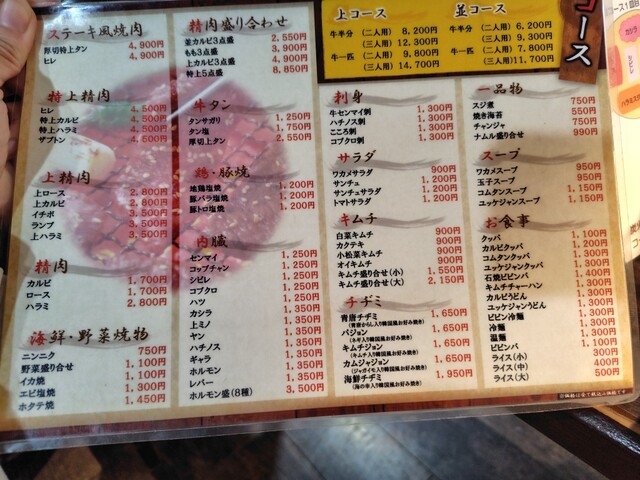 ステーキ風焼肉
厚切特上タン 4,900円
ヒレ 4,900円
特上精肉
ヒレ 4,500円
特上カルビ 4,500円
特上ハラミ 4,500円
ザブトン 4,500円
上精肉
上ロース 2,800円
上カルビ 2,800円
イチボ 3,500円
ランプ 3,500円
上ハラミ 3,500円
精肉
カルビ 1,700円
ロース 1,700円
ハラミ 2,800円
海鮮・野菜焼物
ニンニク 750円
野菜盛り合せ 1,100円
イカ焼 1,100円
エビ塩焼 1,300円
ホタテ焼 1,450円
精肉盛り合わせ
並カルビ3点盛 2,550円
もも3点盛 3,900円
上カルビ3点盛 4,900円
特上5点盛 8,850円
牛タン
タンサガリ 1,250円
タン塩 1,750円
厚切上タン 2,550円
鶏・豚焼
地鶏塩焼 1,200円
豚バラ塩焼 1,200円
豚トロ塩焼 1,200円
内臓
センマイ 1,250円
コップチャン 1,250円
シビレ 1,250円
コブクロ 1,250円
ハツ 1,250円
カシラ 1,250円
上ミノ 1,250円
ヤン 1,250円
ハチノス 1,250円
ギャラ 1,250円
ホルモン 1,250円
レバー 1,250円
ホルモン盛(8種) 3,500円
上コース
牛半分 (二人用) 8,200円
(三人用) 12,300円
牛一匹 (二人用) 9,800円
(三人用) 14,700円
並コース
牛半分 (二人用) 6,200円
(三人用) 9,300円
牛一匹 (二人用) 7,800円
(三人用) 11,700円
コース
刺身
牛センマイ刺 1,300円
ハチノス刺 1,300円
こころ刺 1,300円
コブクロ刺 1,300円
サラダ
ワカメサラダ 900円
サンチュ 1,200円
サンチュサラダ 1,200円
トマトサラダ 1,200円
キムチ
白菜キムチ 900円
カクテキ 900円
小松菜キムチ 900円
オイキムチ 900円
キムチ盛り合せ(小) 1,550円
キムチ盛り合せ(大) 2,150円
チヂミ
青唐チヂミ 1,650円
(青唐からし入り韓国風お好み焼き)
パジョン 1,650円
(ネギ入り韓国風お好み焼き)
キムチジョン 1,650円
(キムチ入り韓国風お好み焼き)
カムジャジョン 1,650円
(ジャガイモ入り韓国風お好み焼き)
海鮮チヂミ 1,950円
(海の幸入り韓国風お好み焼き)
一品物
スジ煮 750円
焼き海苔 550円
チャンジャ 750円
ナムル盛り合せ 990円
スープ
ワカメスープ 950円
玉子スープ 950円
コムタンスープ 1,150円
ユッケジャンスープ 1,150円
お食事
クッパ 1,100円
カルビクッパ 1,200円
コムタンクッパ 1,300円
ユッケジャンクッパ 1,300円
石焼ビビンバ 1,400円
キムチチャーハン 1,300円
カルビうどん 1,300円
ユッケジャンうどん 1,300円
ビビン冷麺 1,300円
冷麺 1,300円
温麺 1,300円
ビビンバ 1,100円
ライス(小) 300円
ライス(中) 400円
ライス(大) 500円
コース1回目
カシラ
シビレ
ハラミステ